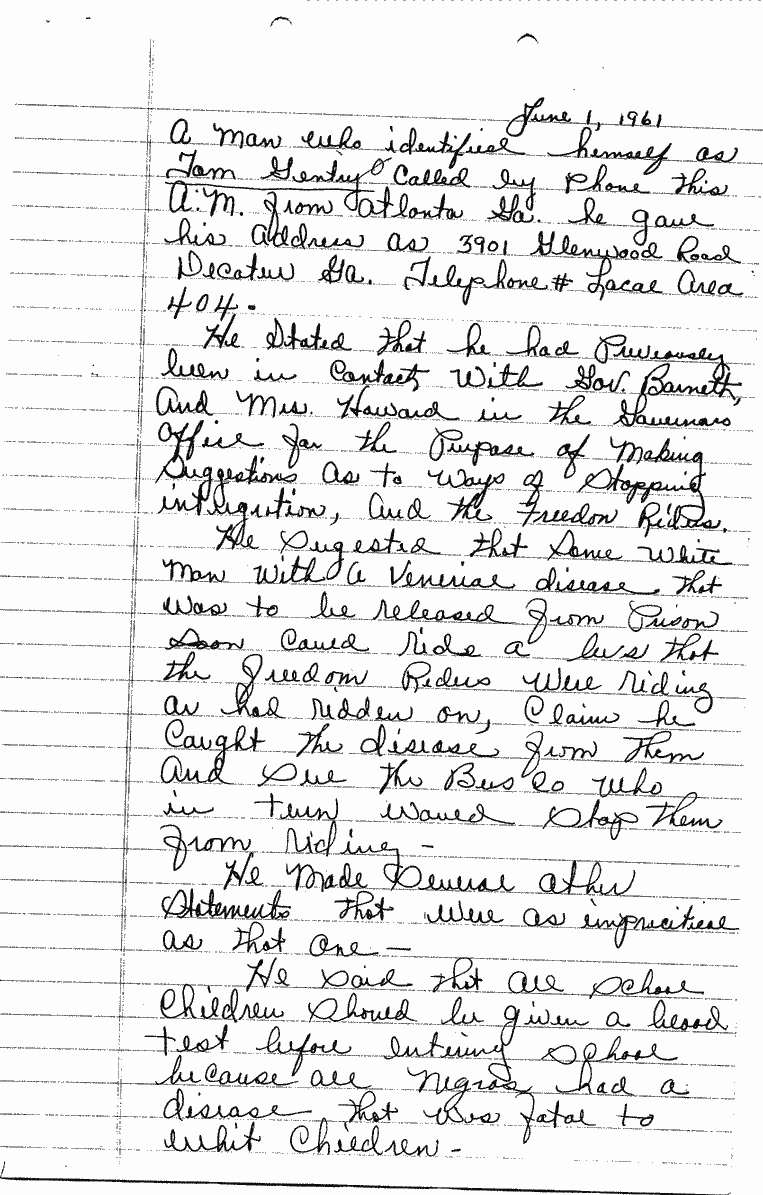 June 1, 1961
A man who identified hemself as
Tom Gentry Called by phone this
A.M. from Atlanta Ga. he gave
his address as 3901 Glenwood Road
Decatur Ga. Telephone # Local Area
404.
He Stated that he had Previously
been in Contact With Gov. Barnett,
And Mrs. Howard in the Governors
Office for the Purpose of Making
Suggestions as to ways of Stopping
intergration, and the Freedon Riders.
He Sugested that Some White
Man With a Venerial disease that
was to be released from Prison
Soon Could ride a bus that
the freedom Riders Were riding
or had ridden on, Claim he
Caught the disease from them
And Sue the Bus Co who
in turn would Stop them
from riding -
He Made Several other
Statements that were as impractical
as that one —
He said that all School
Children Should be given a blood
test before entering School
because all Negros had a
disease that was fatal to
whit Children -